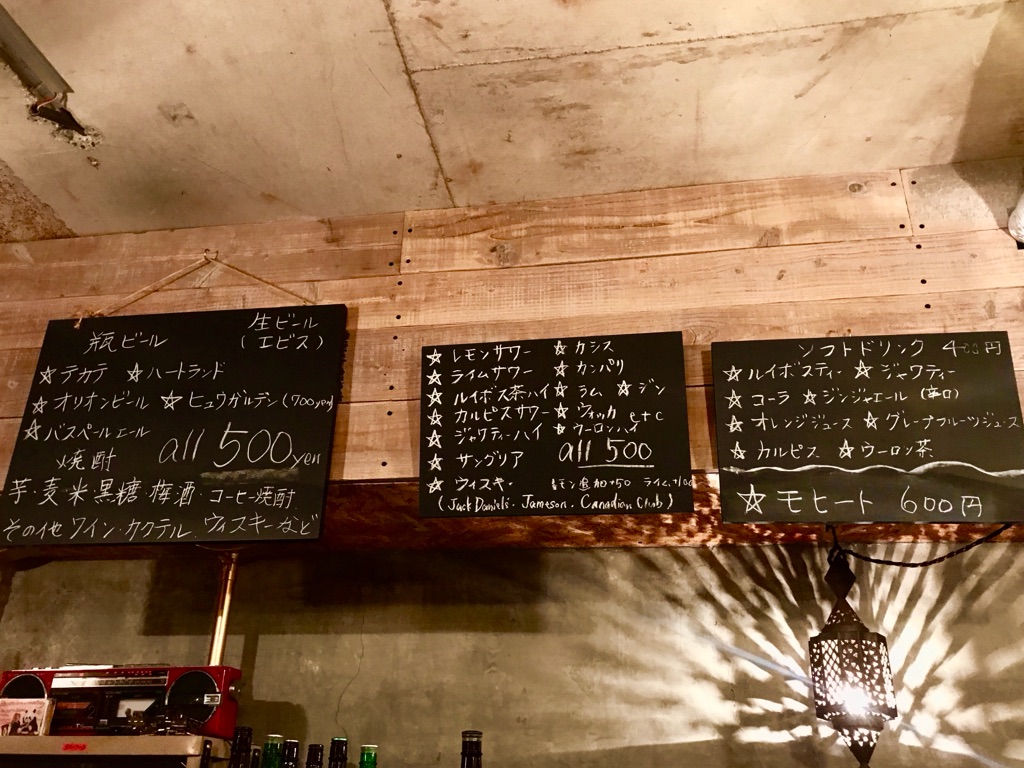 生ビール
瓶ビール (エビス)
☆テカテ ☆ハートランド
☆オリオンビール ☆ヒュウガルデン(700yen)
☆バスペールエール
焼酎 all 500yen
芋・麦・米・黒糖・梅酒・コーヒー焼酎
その他ワイン・カクテル、ウィスキーなど
☆レモンサワー ☆カシス
☆ライムサワー ☆カンパリ
☆ルイボス茶ハイ ☆ラム ☆ジン
☆カルピスサワー ☆ウォッカ etc
☆ジャワティーハイ ☆ウーロンハイ
☆サングリア all 500
☆ウィスキー レモン追加+50 ライム+100
(Jack Daniels・Jameson・Canadian Club)
ソフトドリンク 400円
☆ルイボスティー ☆ジャワティー
☆コーラ ☆ジンジャエール(辛口)
☆オレンジジュース ☆グレープフルーツジュース
☆カルピス ☆ウーロン茶
☆モヒート 600円